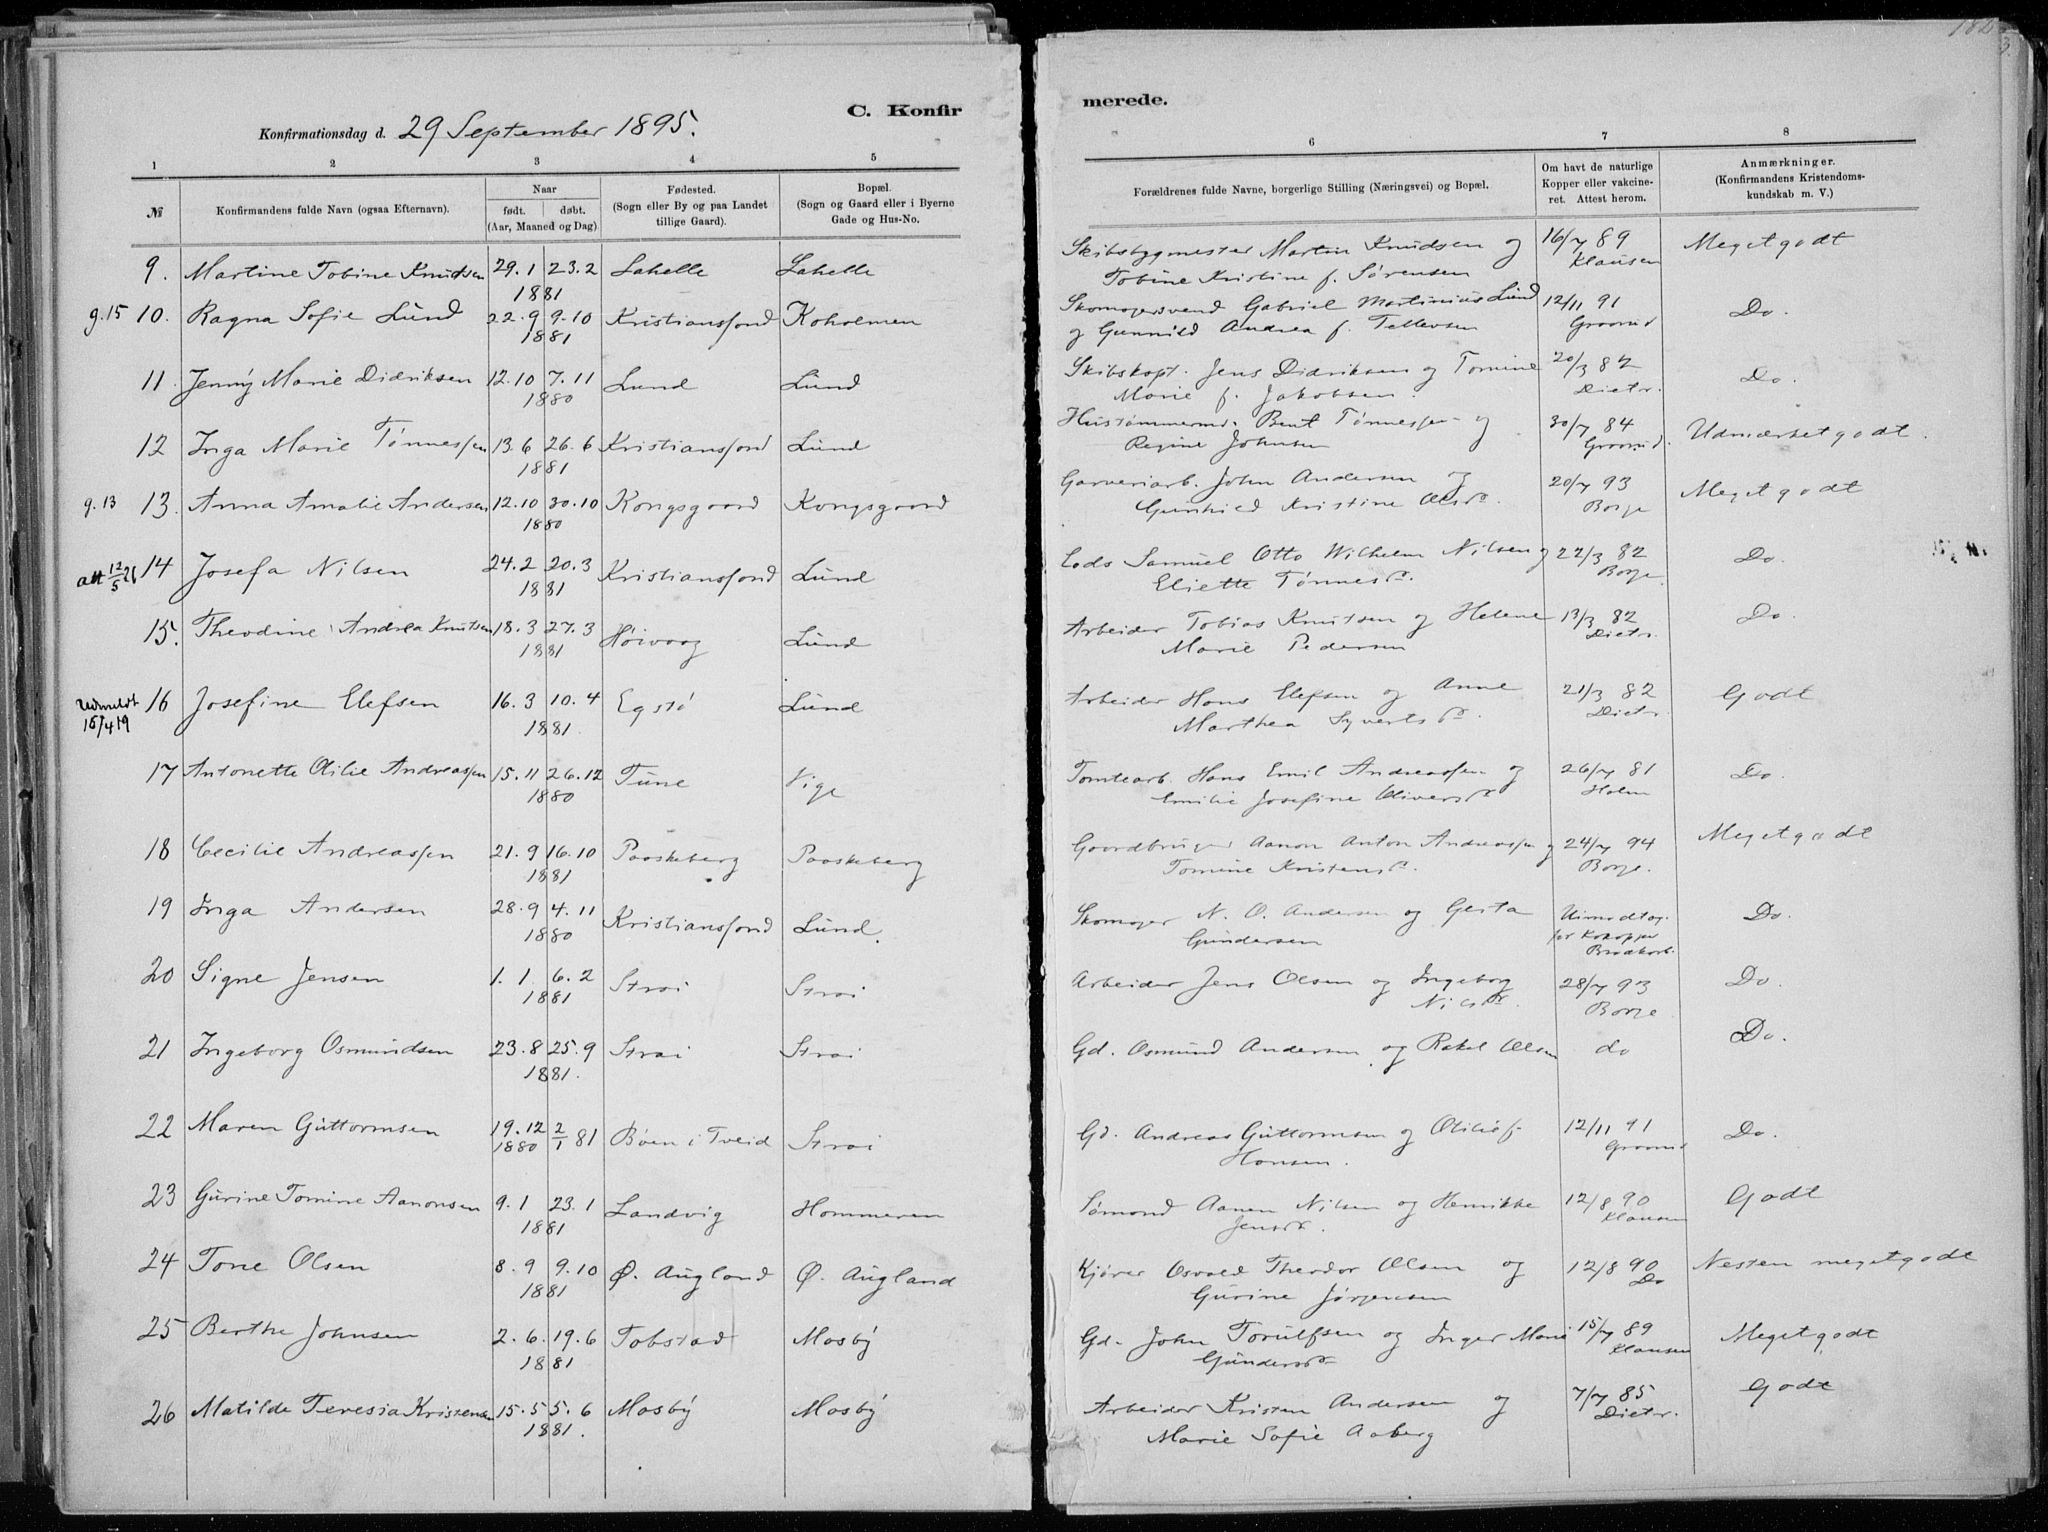 C. Konfir
Konfirmationsdag d. 29 September 1895.
1 2 3 4 5
№ Konfirmandens fulde Navn (ogsaa Efternavn). Naar født. døbt. (Aar, Maaned og Dag) Fødested. (Sogn eller By og paa Landet tillige Gaard). Bopæl. (Sogn og Gaard eller i Byerne Gade og Hus-No.
9. Martine Tobine Knudsen 29.1 23.2 Lahelle Lahelle
1881
g.15 10. Ragna Sofie Lund 22.9 9.10 Kristianssand Koholmen
1881
11. Jenny Marie Didriksen 12.10 7.11 Lund Lund
1880
12 Inga Marie Tønnessen 13.6 26.6 Kristianssand Lund
1881
g.13 13. Anna Amalie Andersen 12.10 30.10 Kongsgaard Kongsgaard
1880
att 12/5 26 14 Josefa Nilsen 24.2 20.3 Kristianssand Lund
1881
15. Theodine Andrea Knutsen 18.3 27.3 Høivaag Lund
1881
Udmeldt 15/4 19 16 Josefine Elefsen 16.3 10.4 Egstø Lund
1881.
17 Antonette Otilie Andreassen 15.11 26.12 Tune Vige
1880
18 Cecilie Andreassen 21.9 16.10 Paaskeberg Paaskeberg
1881
19 Inga Andersen 28.9 4.11 Kristianssand Lund.
1880
20 Signe Jensen 1.1 6.2 Strai Strai
1881
21 Ingeborg Osmundsen 23.8 25.9 Strai Strai
1881.
22 Maren Guttormsen 19.12 1880 2/1 81 Bøen i Tveid Strai
23 Gurine Tomine Aanonsen 9.1 23.1 Landvig Hommeren
1881
24 Tone Olsen 8.9 9.10 Ø. Augland Ø. Augland
1881
25 Berthe Johnsen 2.6. 19.6 Tobstad Mosby
1881
26 Matilde Teresia Kristensen 15.5 5.6 Mosby Mosby
1881.
merede.
6 7 8
Forældrenes fulde Navne, borgerlige Stilling (Næringsvei) og Bopæl. Om havt de naturlige Kopper eller vakcineret. Attest herom. Anmærkninger. (Konfirmandens Kristendomskundskab m. V.)
Skibsbygmester Martin Knudsen og 16/7 89 Meget godt
Tobine Kristine f. Sørensen Klausen
Skomagersvend Gabriel Martinius Lund 12/11 91 Do.
og Gunnild Andrea f. Tellevsen
Skibskapt. Jens Didriksen og Tomine 20/3 82 Do.
Marie f. Jakobsen. Dietr.
Hustømmermd. Bent Tønnessen og 30/7 84 Udmærket godt.
Regine Johnsen
Garveriarb. John Andersen og 20/7 93 Meget godt
Gunhild Kristine Olsd. Borge
Lods Samuel Otto Wilhelm Nilsen og 22/3 82 Do.
Eliette Tønnesd. Borge
Arbeider Tobias Knutsen og Helene 13/3 82 Do.
Marie Pedersen Dietr.
Arbeider Hans Elefsen og Anne 21/3 82 Godt
Marthea Syvertsd. Dietr.
Tomtearb. Hans Emil Andreassen og 26/7 81 Do.
Emilie Josefine Oliversd. Holm
Gaardbruger Aanon Anton Andreassen og 24/7 94 Meget godt
Tomine Kristensd. Borge.
Skomager N. O. Andersen og Do.
Gundersen for Kokopper
Arbeider Jens Olsen og Ingeborg 28/7 93 Do.
Nilsd. Borge
Gd. Osmund Andersen og Rakel Olsen do Do.
Gd. Andreas Guttormsen og Otilie f. 12/11 91 Do.
Hansen.
Sømand Aanen Nilsen og Henrikke 12/8 90 Godt
Jensd. Klausen
Kjører Osvald Theodor Olsen og 12/8 90 Nesten meget godt
Gurine Jørgensen Do
Gd. John Torulfsen og Inger Marie 15/7 89 Meget godt
Gundersd. Klausen
Arbeider Kristen Andersen og 7/7 85 Godt
Marie Sofie Aaberg Dietr.